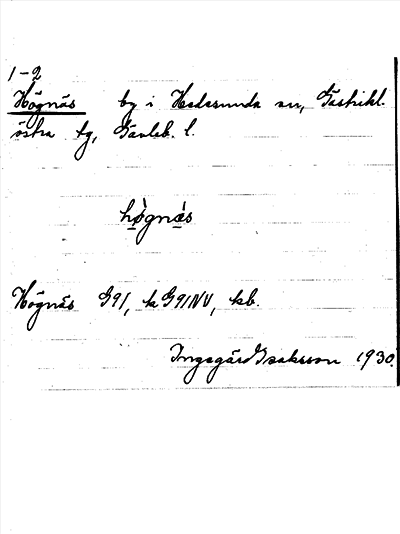 1-2
Högnäs by i Hedesunda sn, Gästrikl.
östra tg, Gävleb. l.
högnäs
Högnäs G91, k G91NV, kb.
Ingegärd Isaksson 1930.